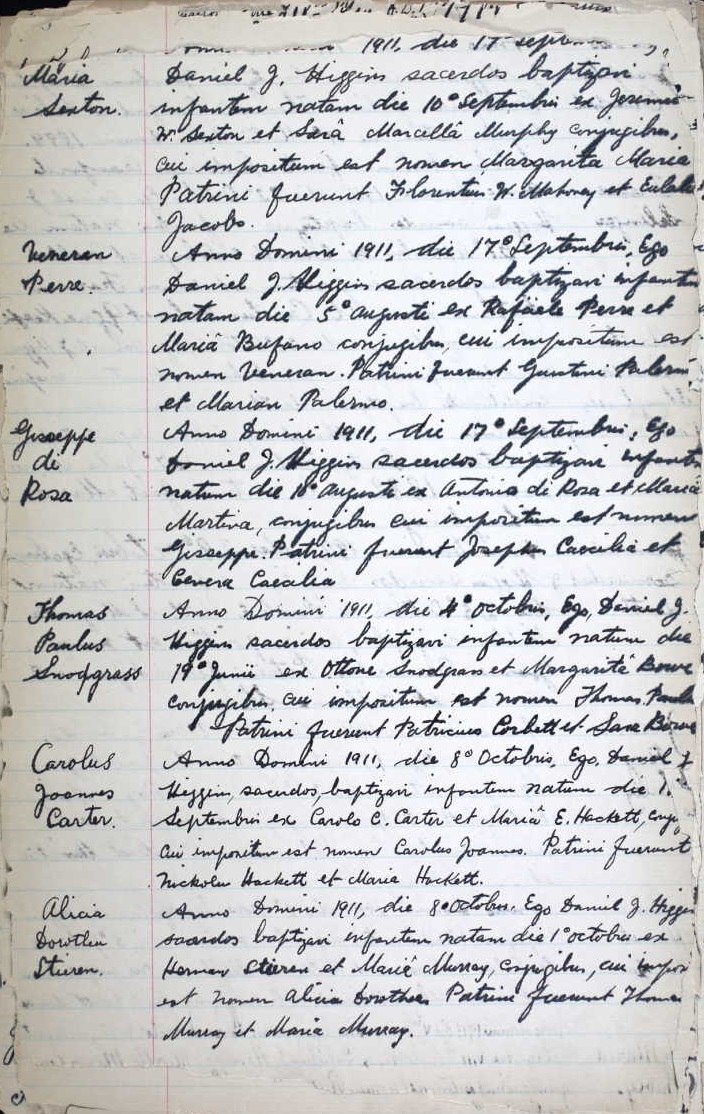 1911, die 17 septem
Maria Daniel J. Higgins sacerdos baptizavi
Sexton. infantem natam die 10° Septembris ex Jeremia
W. Sexton et Sarâ Marcellâ Murphy conjugibus,
cui impositum est nomen Margarita Maria
Patrini fuerunt Florentius W. Mahoney et Eulalia
Jacobs.
Veneran Anno Domini 1911, die 17° Septembris, Ego
Perre. Daniel J. Higgins sacerdos baptizavi infantem
natam die 5° augusti ex Rafaele Perre et
Mariâ Bufano conjugibus, cui impositum est
nomen Veneran. Patrini fuerunt Giustini Palermo
et Marian Palermo.
Giseppe Anno Domini 1911, die 17° Septembris, Ego
di Daniel J. Higgins sacerdos baptizavi infantem
Rosa natum die 10° augusti ex Antonio di Rosa et Mariâ
Martina, conjugibus cui impositum est nomen
Giseppe. Patrini fuerunt Josephus Caecilia et
Cevera Caecilia
Thomas Anno Domini 1911, die 4° octobris, Ego, Daniel J.
Paulus Higgins sacerdos baptizavi infantem natum die
Snodgrass 19° Junii ex Ottone Snodgrass et Margaritâ Bowe
conjugibus, cui impositum est nomen Thomas Paulus
Patrini fuerunt Patricius Corbett et Sara Bowe
Carolus Anno Domini 1911, die 8° Octobris, Ego, Daniel J
Joannes Higgins, sacerdos, baptizavi infantem natum die 1.
Carter. Septembris ex Carolo C. Carter et Mariâ E. Hackett, conju
cui impositum est nomen Carolus Joannes. Patrini fuerunt
Nickolus Hackett et Maria Hackett.
Alicia Anno Domini 1911, die 8° Octobris. Ego Daniel J. Higgins
Dorothea sacerdos baptizavi infantem natam die 1° octobris ex
Stieren. Herman Stieren et Mariâ Murray, conjugibus, cui impos
est nomen Alicia Dorothea Patrini fuerunt Thomas
Murray et Maria Murray.